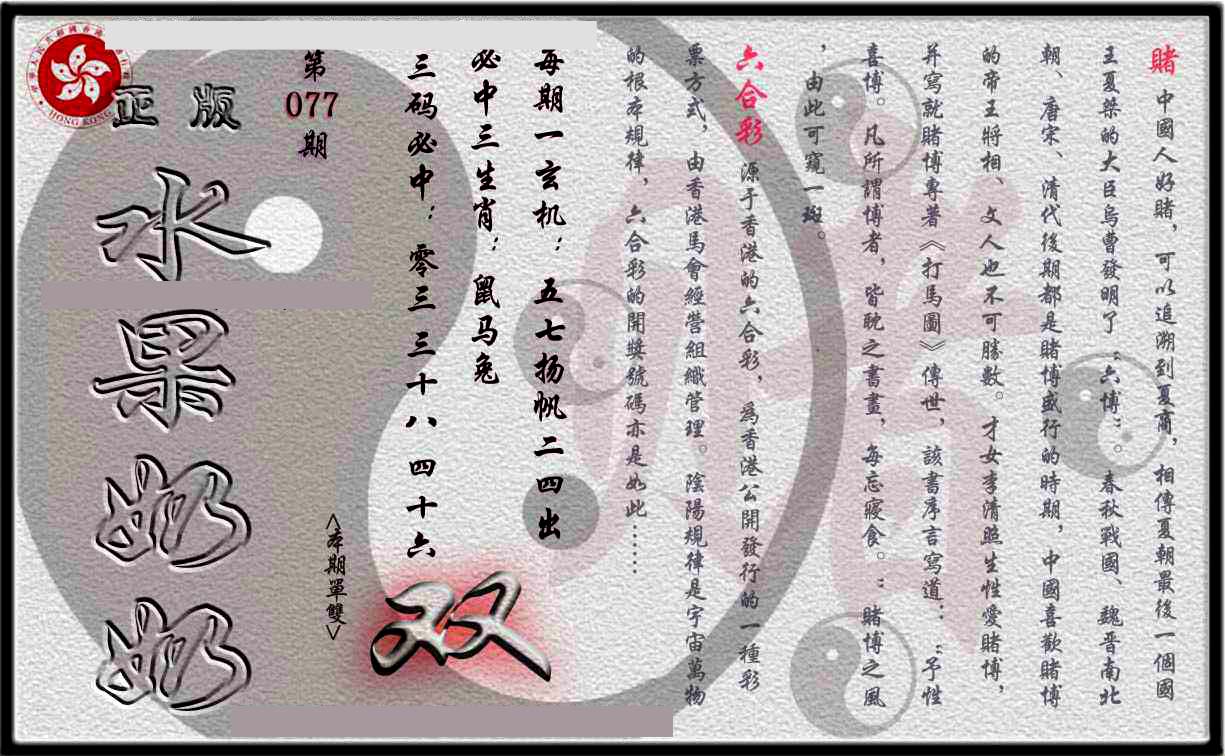 赌 中國人好賭，可以追溯到夏商，相傳夏朝最後一個國
王夏桀的大臣烏曹發明了“六博”。春秋戰國、魏晋南北
朝、唐宋、清代後期都是賭博盛行的時期，中國喜歡賭博
的帝王將相、文人也不可勝數。才女李清照生性愛賭博，
并寫就賭博專著《打馬圖》傳世，該書序言寫道：“予性
喜博。凡所謂博者，皆耽之書畫，每忘寢食。”賭博之風
，由此可窺一斑。
六合彩 源于香港的六合彩，為香港公開發行的一種彩
票方式，由香港馬會經營組織管理。陰陽規律是宇宙萬物
的根本規律，六合彩的開獎號碼亦是如此……
每期一玄机：五七扬帆二四出
必中三生肖：鼠马兔
三码必中：零三 三十八 四十六
<本期單雙>
双
第
077
期
正版
水果奶奶
HONG KONG